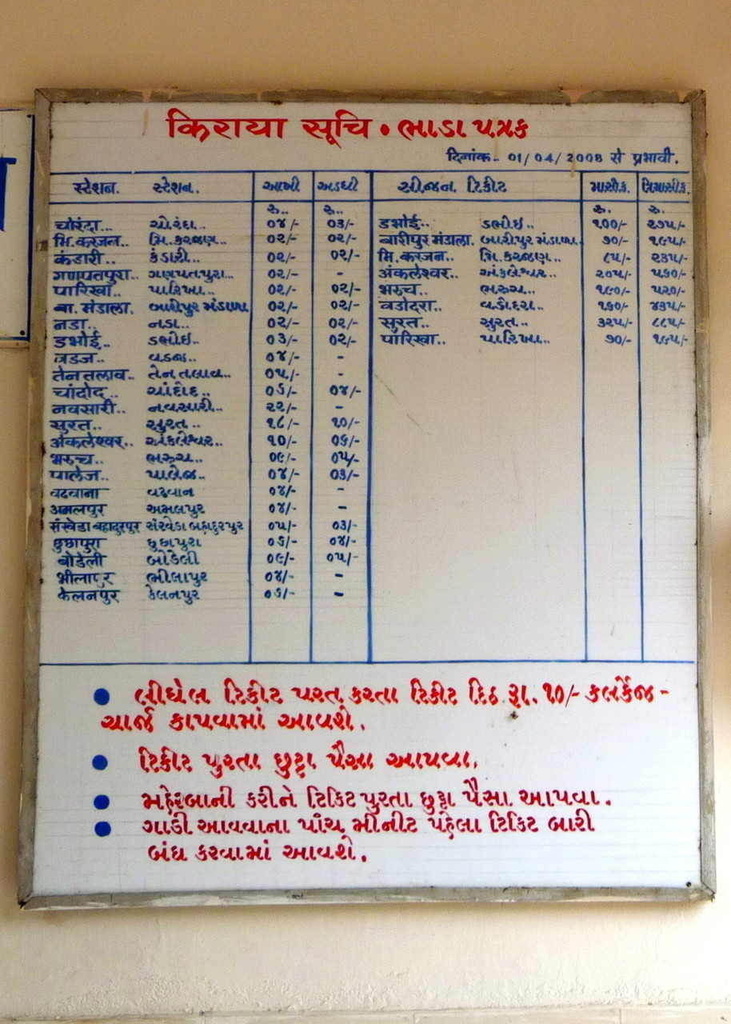 किराया सूचि • ભાડા પત્રક
दिनांक- 01/04/2008 से प्रभावी.
स्टेशन. સ્ટેશન. આખી અડધી સીજન ટિકીટ માસીક. ત્રિમાસીક.
રુ.. રુ.. રુ. રુ.
चोरंदा... ચોરંદા.. ૦૪/- ૦૩/- डभोई.. ડભોઇ.. ૧૦૦/- ૨૭૫/-
मि.करजन.. મિ.કરજણ.. ૦૨/- ૦૨/- बारीपुर मंडाला. બારીપુર મંડાળા. ૭૦/- ૧૯૫/-
कंडारी.. કંડારી.. ૦૨/- ૦૨/- मि.करजन.. મિ.કરજણ.. ૮૫/- ૨૩૫/-
गणपतपुरा.. ગણપતપુરા.. ૦૨/- - अंकलेश्वर.. અંકલેશ્વર.. ૨૦૫/- ૫૬૦/-
पारिखा.. પારિખા.. ૦૨/- ૦૨/- भरूच.. ભરુચ.. ૧૯૦/- ૫૨૦/-
बा.मंडाला. બારીપુર મંડાળા ૦૨/- ૦૨/- वडोदरा.. વડોદરા.. ૧૬૦/- ૪૩૫/-
नडा.. નડા.. ૦૨/- ૦૨/- सुरत.. સુરત.. ૩૨૫/- ૮૮૫/-
डभोई.. ડભોઇ.. ૦૩/- ૦૨/- पारिखा.. પારિખા.. ૭૦/- ૧૯૫/-
वडज.. વડજ.. ૦૪/- -
तेनतलाव.. તેનતલાવ.. ૦૫/- -
चांदोद.. ચાંદોદ.. ૦૬/- ૦૪/-
नवसारी.. નવસારી.. ૨૨/- -
सुरत.. સુરત.. ૧૮/- ૧૦/-
अंकलेश्वर.. અંકલેશ્વર.. ૧૦/- ૦૬/-
भरूच.. ભરુચ.. ૦૯/- ૦૫/-
पालेज.. પાલેજ.. ૦૪/- ૦૩/-
वढवाना વઢવાન ૦૪/- -
अमलपुर અમલપુર ૦૪/- -
संखेडा बहादुरपुर સંખેડા બહાદુરપુર ૦૫/- ૦૩/-
छुछापुरा છુછાપુરા ૦૬/- ૦૪/-
बोडेली બોડેલી ૦૯/- ૦૫/-
भीलापुर ભીલાપુર ૦૪/- -
केलनपुर કેલનપુર ૦૬/- -
• લીધેલ ટિકીટ પરત કરતા ટિકીટ દિઠ રૂા. ૧૦/- કલર્કેજ -
ચાર્જ કાપવામાં આવશે.
• ટિકીટ પુરતા છુટ્ટા પૈસા આપવા.
• મહેરબાની કરીને ટિકિટ પુરતા છુટ્ટા પૈસા આપવા.
• ગાડી આવવાના પાંચ મીનીટ પહેલા ટિકિટ બારી
બંધ કરવામાં આવશે.